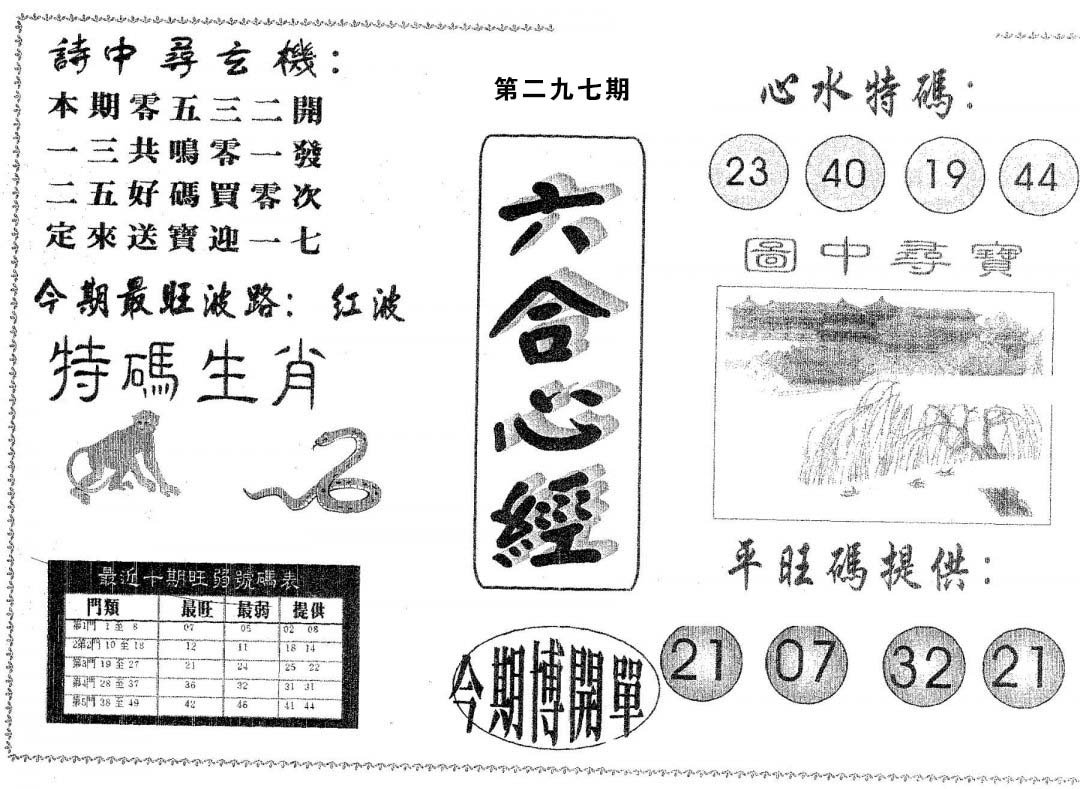 詩中尋玄機：
本期零五三二開
一三共鳴零一發
二五好碼買零次
定來送寶迎一七
今期最旺波路： 红波
特碼生肖
最近十期旺弱號碼表
門類 最旺 最弱 提供
第1門 1 至 8 07 05 02 08
2第2門 10 至 18 12 11 18 14
第3門 19 至 27 21 24 25 22
第4門 28 至 37 36 32 31 31
第5門 38 至 49 42 46 41 44
第二九七期
六合心經
今期博開單
心水特碼：
23 40 19 44
圖中尋寶
平旺碼提供：
21 07 32 21